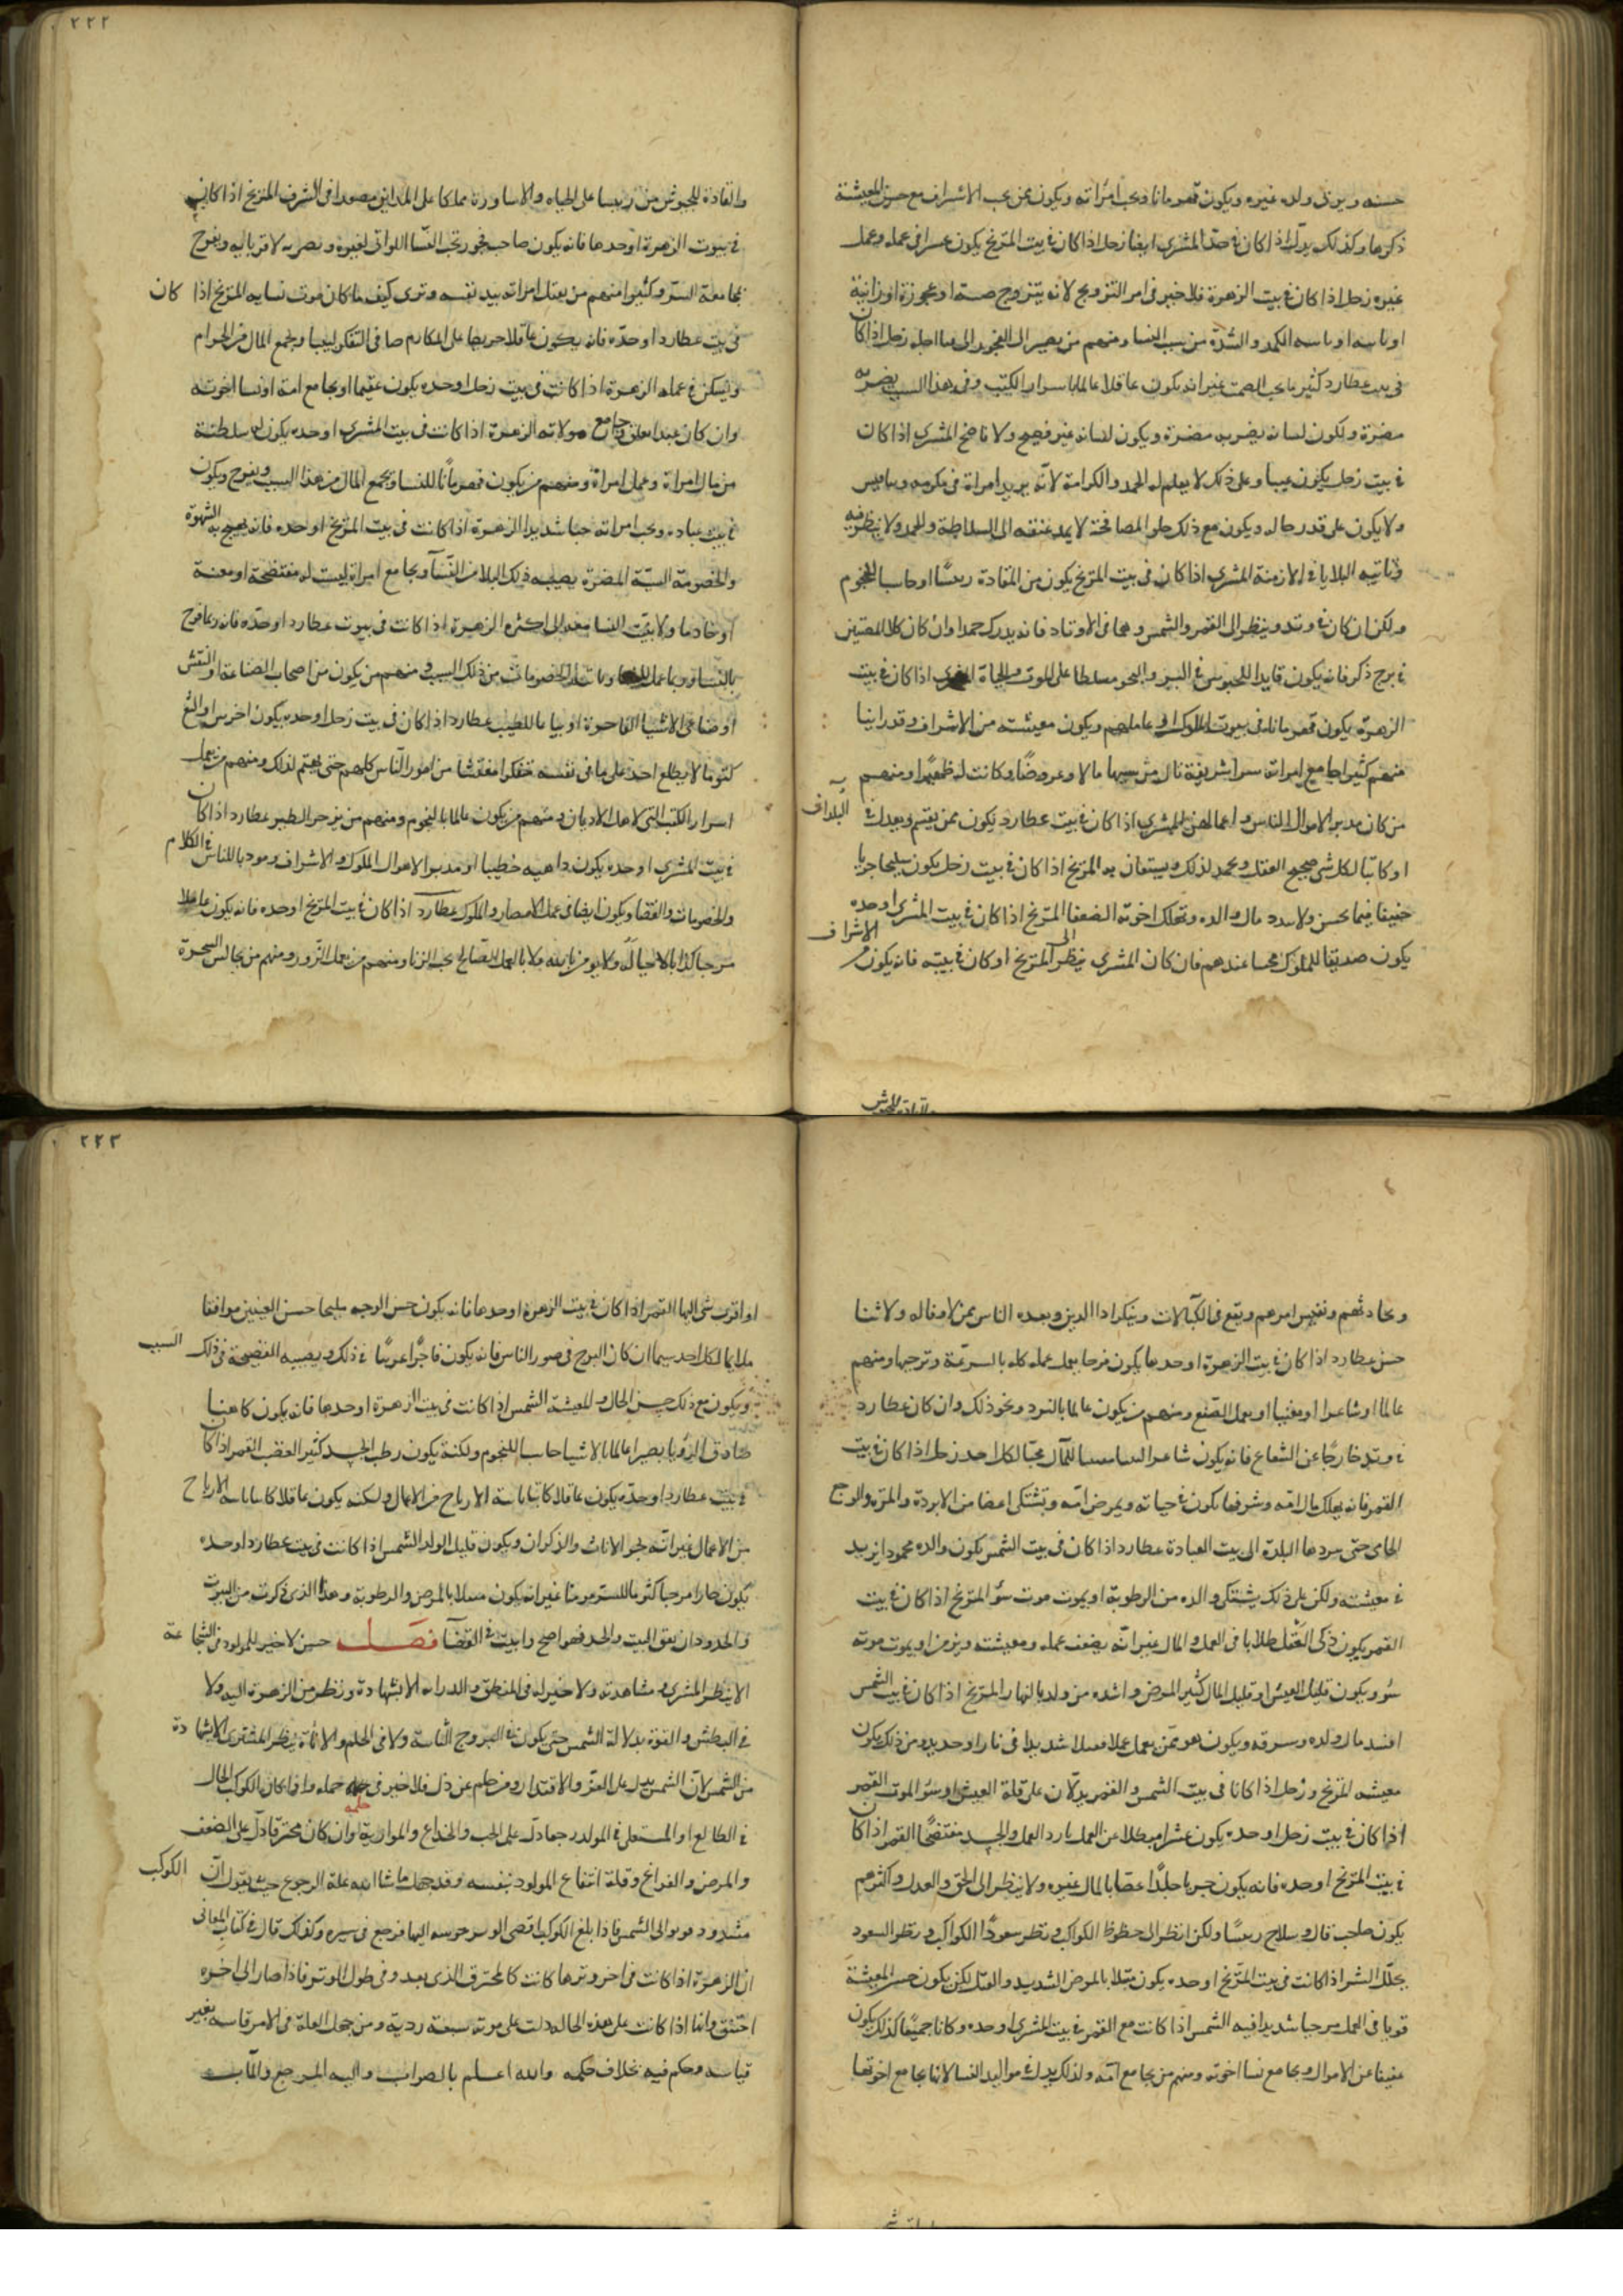 حسنه ويربى ولد غيره ويكون قهرمانا ويحب امراته ويكون ممن يحب الاشراف مع حسن المعيشة
ذكرها وكذلك يدل اذا كان في حد المشترى ايضا زحل اذا كان في بيت المريخ يكون عسرا في عمله وعمل
غيره زحل اذا كان في بيت الزهرة فلا خير في امر التزويج لانه يتزوج او عجوزة او زانية
الكمد والشدة من سبب النسا ومنهم من يصير الى الفجور زحل اذا كان
في بيت عطارد كثيرا يحب الصمت غير انه يكون عاقلا عالما باسرار الكتب وفي هذا السبب يضر به
مضرة ويكون لسانه يضر به مضرة ويكون لسانه غير فصيح ولا ناصح المشترى اذا كان
في بيت زحل يكون وعلى ذلك لا يعلم له الحمد والكرامة لانه يريد امراة
ولا يكون على قدر حاله ويكون مع ذلك حلو المصافحة لا يمد عنقه الى السلاطة والحمد ولا ينظر فيه
وتاتيه البلايا في الازمنة المشترى اذا كان في بيت المريخ يكون من القادة رييسا او حاسبا للنجوم
ولكن ان كان في وتد وينظر الى القمر والشمس وهما في الاوتاد فانه يدرك حمدا وان كان كلا المضيين
في برج ذكر فانه يكون قايدا للجيوش في البر والبحر مسلطا على الموت والحياة المشترى اذا كان في بيت
الزهرة يكون قهرمانا في بيوت الملوك او عاملهم ويكون معيشته من الاشراف وقد راينا
منهم كثيرا جامع امراته سرا شريفة نال من سببها مالا وعروضا وكانت له ومنهم
من كان مدبر الاموال الناس واعمالهن المشترى اذا كان في بيت عطارد يكون ممن يقسم ويعدل في البلدان
او كاتبا لكل شى صحيح العقل ويحمد لذلك ويستعان به المريخ اذا كان في بيت زحل يكون
خفيفا فيما يحسن ولا مال والده وتهلك اخوته الضعفا المريخ اذا كان في بيت المشترى او حده
يكون صديقا للملوك عندهم فان كان المشترى ينظر الى المريخ او كان في بيته فانه يكون من الاشراف
والقادة للجيوش
والقادة للجيوش من رييسا على الحياه والاساورة مملكا على المداين مصعدا في الشرف المريخ اذا كان
في بيوت الزهرة او حدها فانه يكون صاحب فجور يحب النسا اللواتي لغيره ويصير به لاقربايه ويفرح
بمجامعة الستر وكثيرا منهم من يقتل امراته بيد نفسه وترى كيف ما كان موت نسايه المريخ اذا كان
في بيت عطارد او حده فانه يكون عاقلا حريصا على المكارم صافى التفكر لبيبا ويجمع المال من الحرام
ويسكن في عمله الزهرة اذا كانت في بيت زحل او حده يكون عقيما او يجامع امه او نسا اخوته
وان كان عبدا جامع مولاته الزهرة اذا كانت في بيت المشترى او حده يكون له سلطنة
من مال امراة وعمل امراة ومنهم من يكون قهرمانا للنسا ويجمع المال من هذا السبب ويفرح ويكون
في بيت عبادة ويحب امراته حبا شديدا الزهرة اذا كانت في بيت المريخ او حده فانه يهيج به الشهوة
والخصومة السية المضرة يصيبه ذلك البلا من النسآ ويجامع امراة ليست له مفتضحة او مغنية
او خادما ولا يثبت النسا معه الى اكثره الزهرة اذا كانت في بيوت عطارد او حده فانه ربما فرح
بالنسا الخصومات من ذلك السبب ومنهم من يكون من اصحاب الصناعة او النقش
او صناعي الاشيا الفاخرة او بياعا للطيب عطارد اذا كان في بيت زحل او حده يكون اخرس او الثغ
كتوما لا يطلع احد على ما في نفسه متفكرا مفتشا من امور الناس كلهم حتى يهتم لذلك ومنهم من يعمل
اسرار الكتب التي لاهل الاديان ومنهم من يكون عالما بالنجوم ومنهم من يزجر الطير عطارد اذا كان
في بيت المشترى او حده يكون داهيه خطيبا او مدبرا لاموال الملوك والاشراف ومودبا للناس في الكلام
والخصومات والقضا ويكون ايضا في عمل الامصار والملوك عطارد اذا كان في بيت المريخ او حده فانه يكون عاملا
كذابا لا حيا له ولا يومن بالله ولا بالعمل الصالح يحب الزنا ومنهم من يعمل الزور ومنهم من يجالس السحرة
٢٢٢
ومحادثهم وتفتيش امرهم ويقع في الكفالات وينكر اداء الدين ويعده الناس ممن لا وفا له ولا ثنا
حسن عطارد اذا كان في بيت الزهرة او حدها يكون فرحا يعمل عمله كله بالسرعة ومنهم
عالما او شاعرا او مغنيا او يعمل الصنع ومنهم من يكون عالما بالنرد ونحو ذلك وان كان عطارد
في وتد خارجا عن الشعاع فانه يكون شاعرا للمال محبا لكل احد زحل اذا كان في بيت
القمر فانه يهلك مال امه وشرفها يكون في حياته ويمرض امه ويشتكى اعضا من الابردة والمرة والوجع
الخامى حتى البلدة الى بيت العبادة عطارد اذا كان في بيت الشمس يكون والده محمودا يزيد
في معيشته ولكن على ذلك يشتكى والده من الرطوبة او يموت موت سو المريخ اذا كان في بيت
القمر يكون ذكى العقل طلابا في العمل والمال غير انه يضعف عمله ومعيشته ويزمن او يموت موته
سو ويكون قليل العيش او قليل المال كثير المرض واشده من ولد بالنهار المريخ اذا كان في بيت الشمس
افسد مال ولده وسرقه ويكون هو ممن يعمل عملا شديدا في نار او حديد ومن ذلك يكون
معيشه المريخ وزحل اذا كانا في بيت الشمس والقمر يدلان على قلة العيش او سو الموت القمر
اذا كان في بيت زحل او حده يكون عسرا مبطلا عن العمل بارد العمل والجسد مفتضحا القمر اذا كان
في بيت المريخ او حده فانه يكون جريا جلدا غصابا لمال غيره ولا ينظر الى الحق والعدل واكثرهم
يكون صاحب قال وسلاح رييسا ولكن انظر الى حظوظ الكواكب ونظر سعود الكواكب ونظر السعود
يحلل الشر اذا كانت في بيت المريخ او حده يكون مبتلا بالمرض الشديد والقتل لكن يكون حسن المعيشة
قويا في العمل مرحبا شديدا فيه الشمس اذا كانت مع القمر في بيت المشترى او حده وكانا جميعا كذلك يكون
غنيا عن الاموال ويجامع نسا اخوته ومنهم من يجامع امه ولذلك يدل في مواليد النسا لانها تجامع اخوتها
او اقرب شى اليها القمر اذا كان في بيت الزهرة او حدها فانه يكون حسن الوجه مليحا حسن العينين موافقا
ملايما لكل احد سيما ان كان البرج في صور الناس فانه يكون فاجرا في ذلك ويصيبه الفضيحة في ذلك السبب
ويكون مع ذلك حسن الحال والمعيشة الشمس اذا كانت في بيت الزهرة او حدها فانه يكون كاهنا
صادق الرويا بصيرا عالما بالاشيا حاسبا للنجوم ولكنه يكون رطب الجسد كثير الغضب القمر اذا كان
في بيت عطارد او حده يكون عاقلا كاتبا الارباح من الاعمال ولكنه يكون عاقلا الارباح
من الاعمال غير انه يحب الاناث والذكران ويكون قليل الولد الشمس اذا كانت في بيت عطارد او حده
يكون صارا مرحبا كثوما للستر مومنا غير انه يكون مبتلا بالمرض والرطوبة وهذا الذى ذكرت من البيوت
والحدود ان يتفق البيت والحد فهو اصح واثبت في القضآ فصل حسن لا خير للمولود في الشجاعة
الا بنظر المشترى مشاهدته ولا خير له في المنطق والدرايه الا بشهادة ونظر من الزهرة اليه ولا
في البطش والقوة بدلالة الشمس حتى يكون في البروج الثابتة ولا في الحلم والاناة بنظر المشترى الا بشهادة
من الشمس لان الشمس يدل على العز والاقتدار ومن حلم عن ذل فلا خير في حلمه واذا كان الكوكب الحال
حلمه
في الطالع او المستعلى في المولد رجعا دل على الخب والخداع والمواربة وان كان محترقا دل على الضعف
والمرض والفزائع وقلة انتفاع المولود بنفسه وقد جعل ما شا الله علة الرجوع حيث يقول ان الكوكب
مشدود هو الى الشمس فاذا بلغ الكوكب اقصى الوتر اليها فرجع في سيره وكذلك قال في كتاب المعانى
ان الزهرة اذا كانت في اخر وترها كانت كالمحترق الذى يعد وفي طول الوتر فاذا صار الى اخره
اختنق وانما اذا كانت على هذه الحاله دلت على موته ردية ومن جهل العلة في الامر قاسه بغير
قياسه وحكم فيه بخلاف حكمه والله اعلم بالصواب واليه المرجع والمآب
٢٢٣